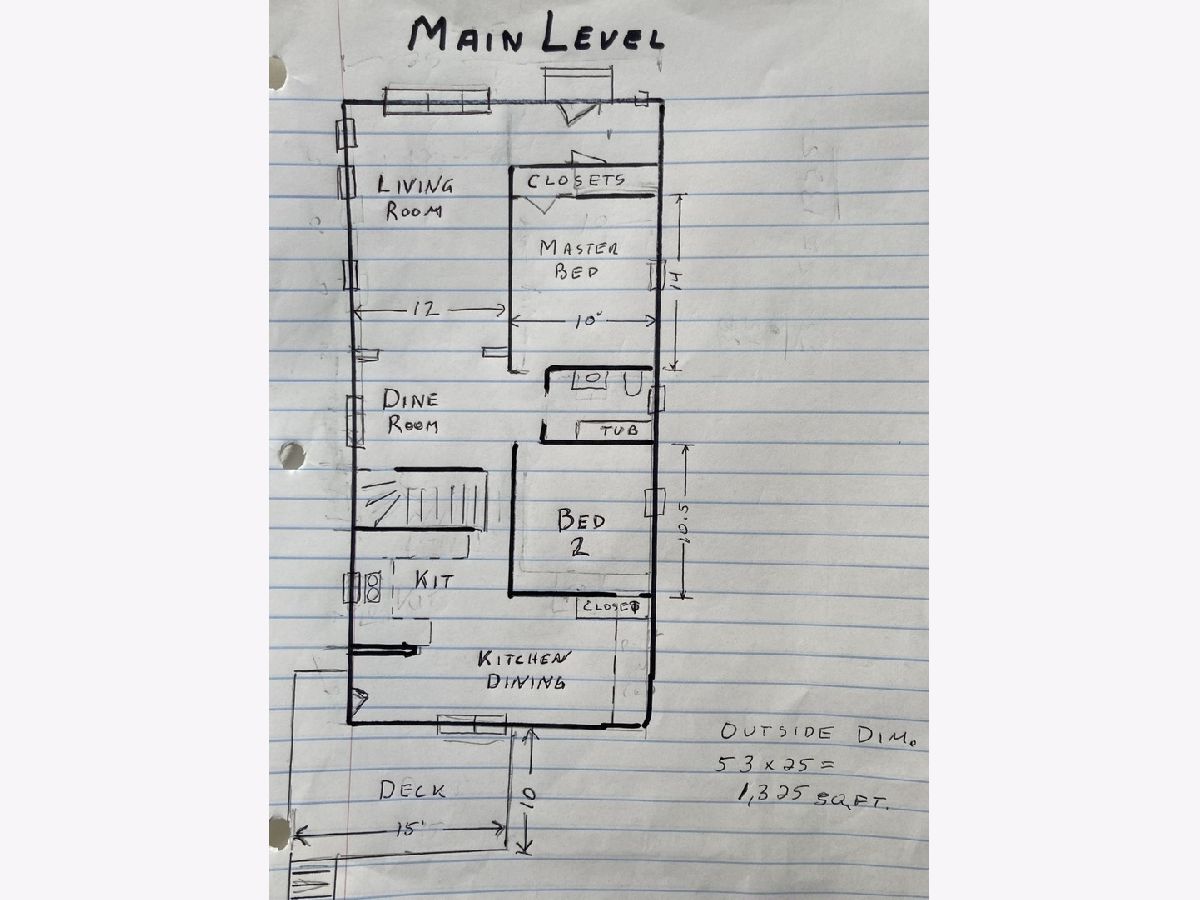 MAIN LEVEL
CLOSETS
LIVING
ROOM
MASTER
BED
14
12
10'
DINE
ROOM
TUB
10.5
BED
2
KIT
CLOSET
KITCHEN
DINING
OUTSIDE DIM.
53 x 25 =
1,325 SQ.FT.
DECK
10
15'